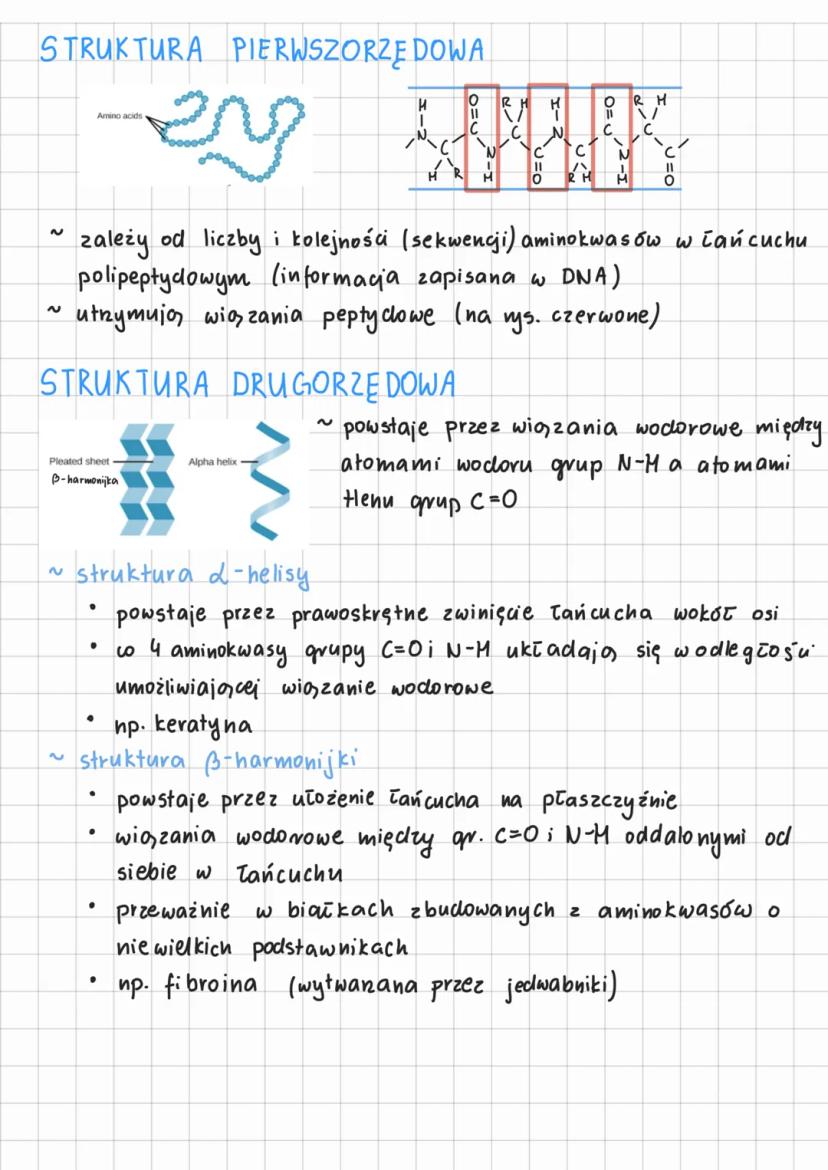 STRUKTURA PIERWSZORZĘDOWA
Amino acids
H O R H H O R H
N C C N C C
C N C C N C
H R H O R H H O
~ zależy od liczby i kolejności (sekwencji) aminokwasów w łańcuchu
polipeptydowym (informacja zapisana w DNA)
~ utrzymują wiązania peptydowe (na rys. czerwone)
STRUKTURA DRUGORZĘDOWA
~ powstaje przez wiązania wodorowe między
atomami wodoru grup N-H a atomami
tlenu grup C=O
Pleated sheet
β-harmonijka
Alpha helix
~ struktura α-helisy
• powstaje przez prawoskrętne zwinięcie łańcucha wokół osi
• co 4 aminokwasy grupy C=O i N-H układają się w odległości
umożliwiającej wiązanie wodorowe
• np. keratyna
~ struktura β-harmonijki
• powstaje przez ułożenie łańcucha na płaszczyźnie
• wiązania wodorowe między gr. C=O i N-H oddalonymi od
siebie w łańcuchu
• przeważnie w białkach zbudowanych z aminokwasów o
niewielkich podstawnikach
• np. fibroina (wytwarzana przez jedwabniki)